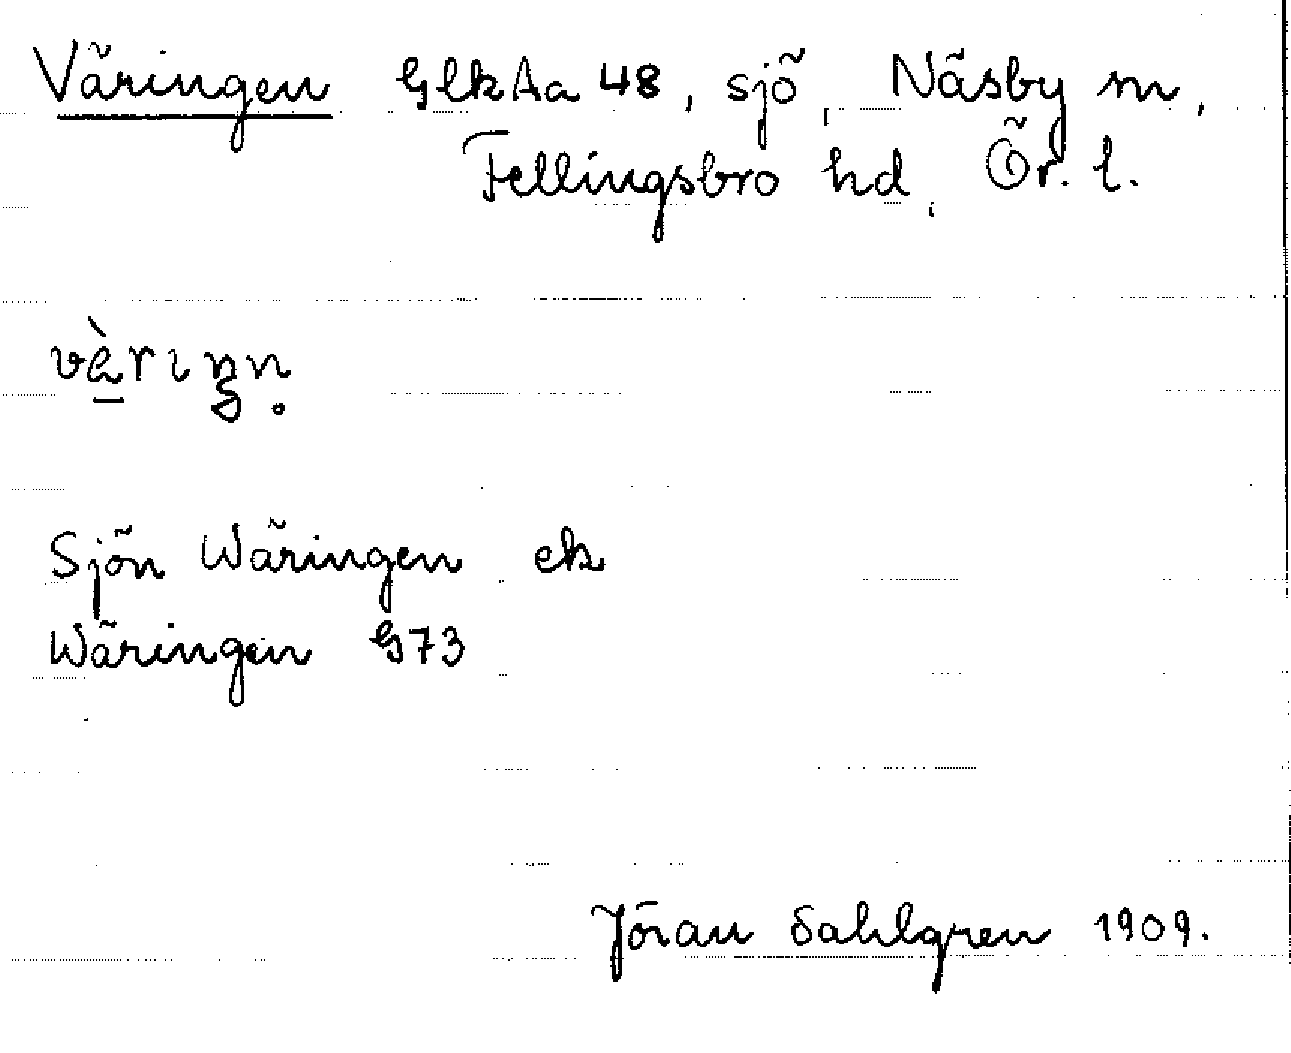 Väringen GlkAa 48, sjö, Näsby sn,
Fellingsbro hd, Ör. l.
vä̀riŋn.
Sjön Wäringen ek
Wäringen G73
Jöran Sahlgren 1909.